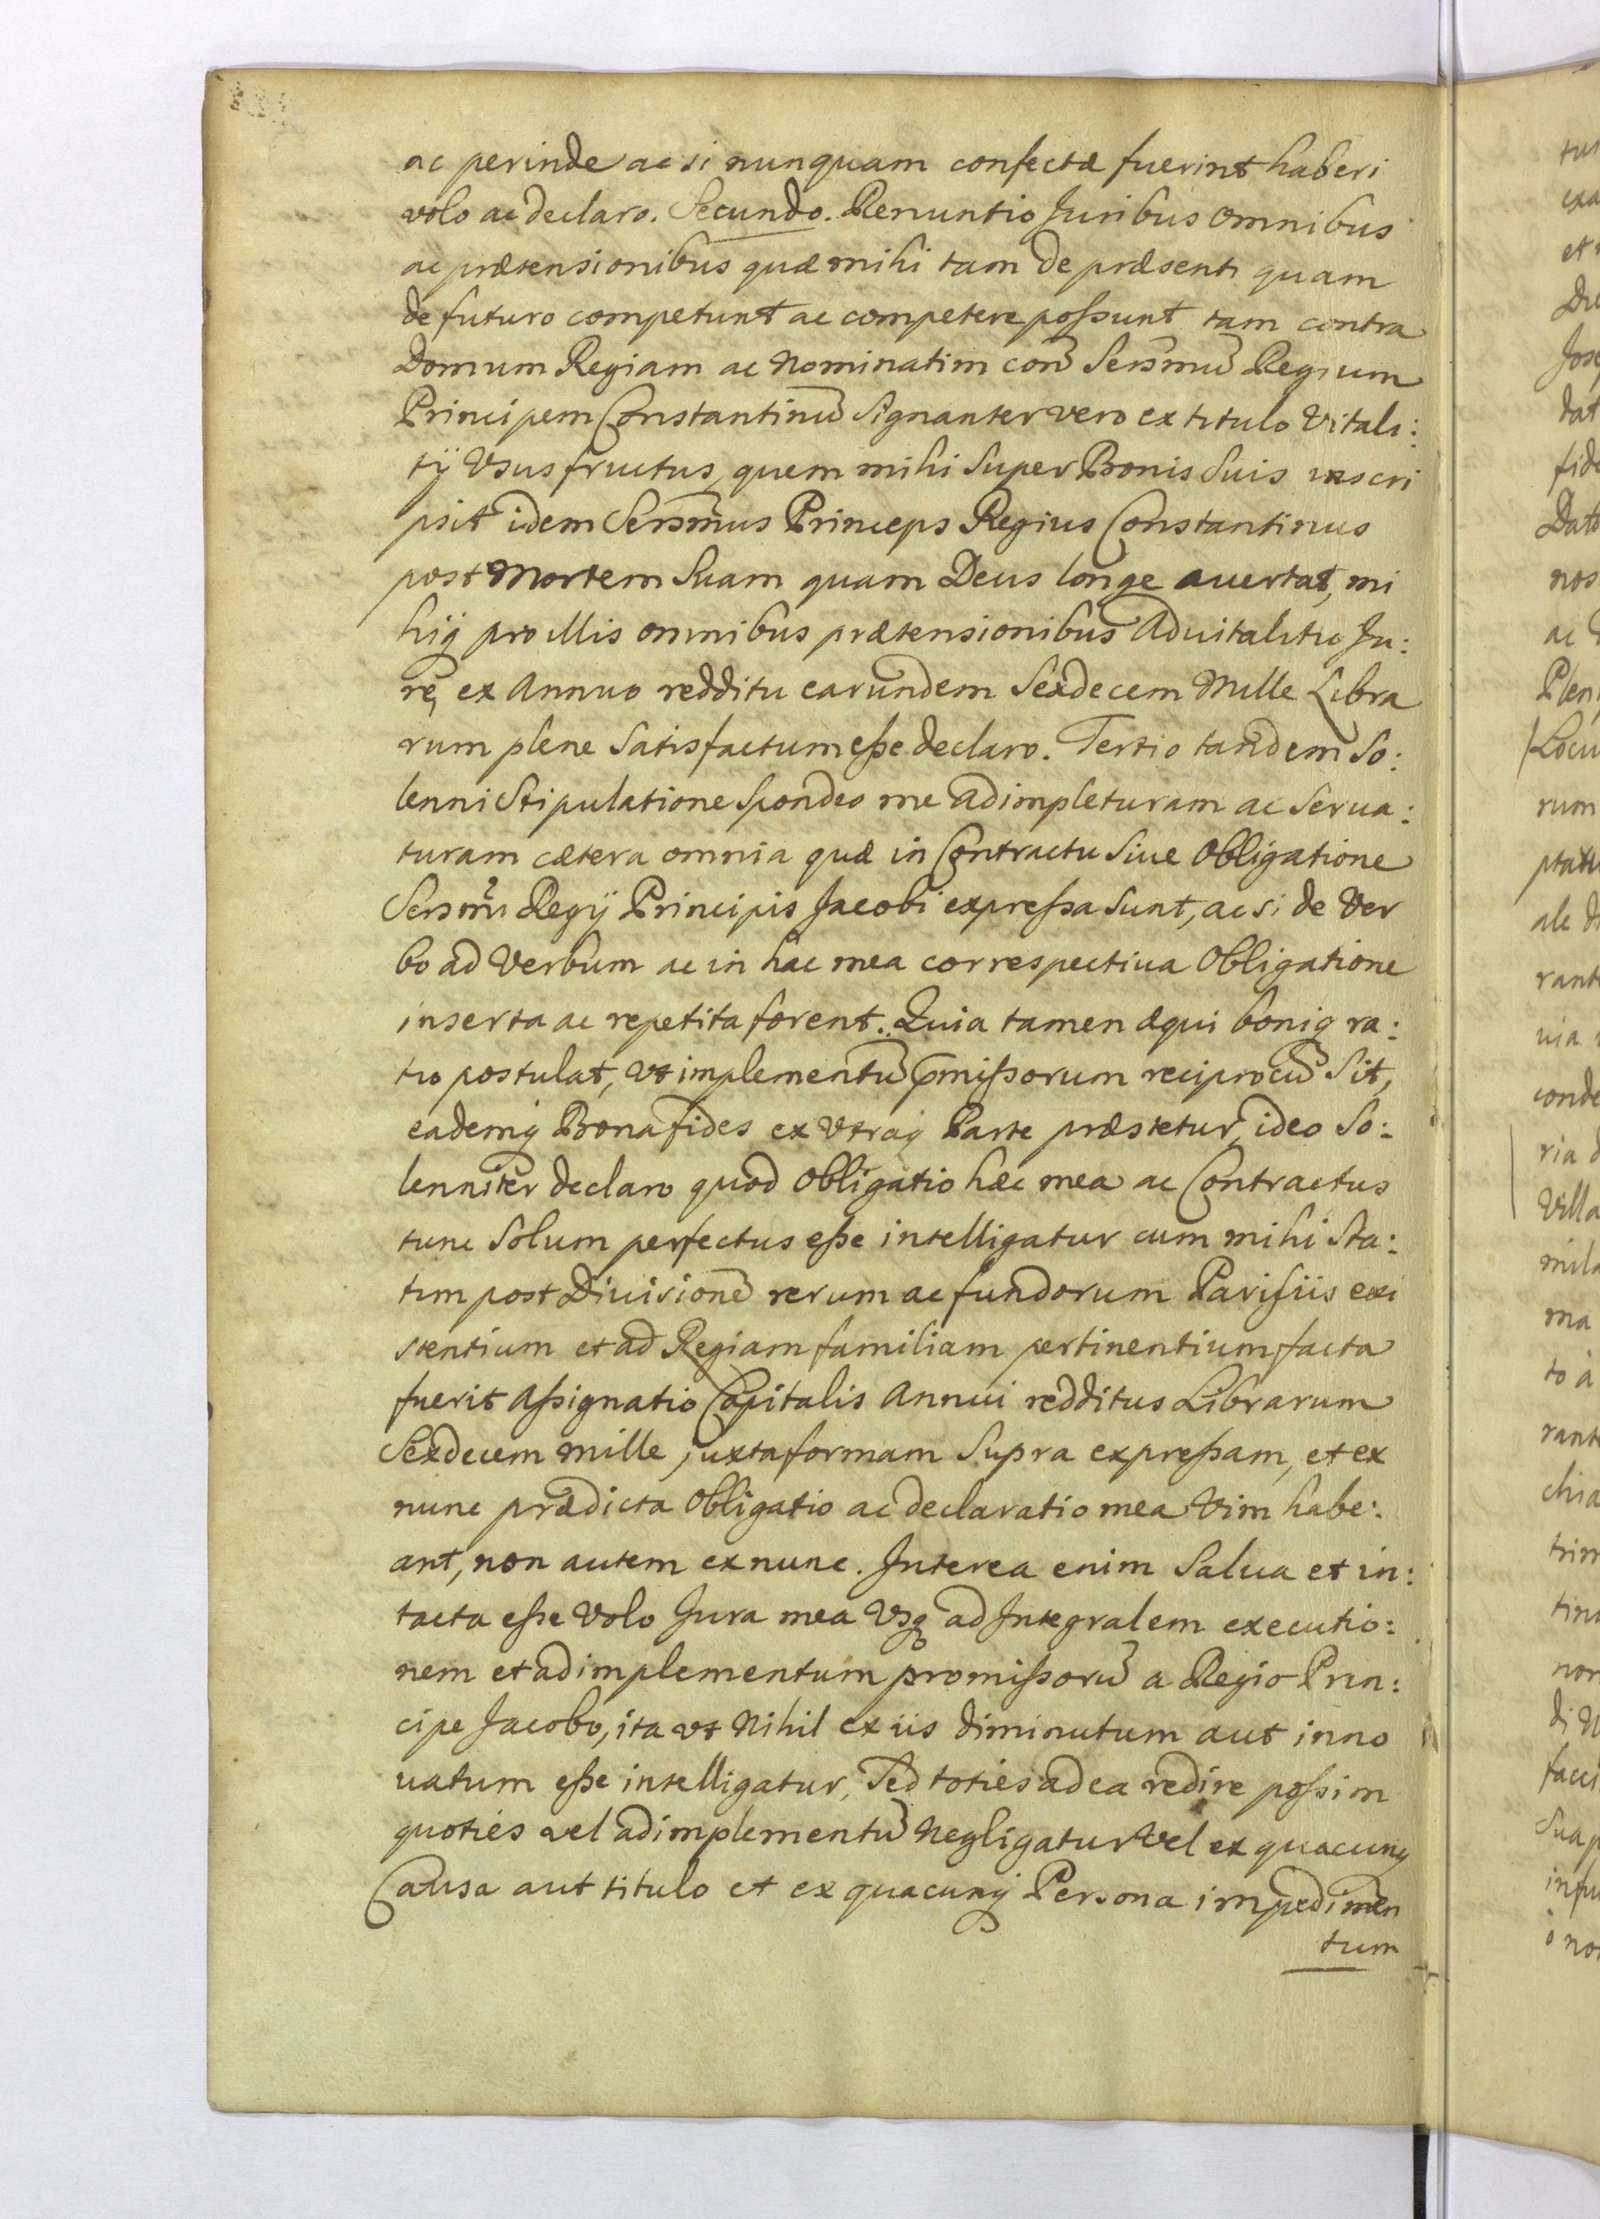 ac perinde ac si nunquam confectæ fuerint haberi
volo ac declaro. Secundo. Renuntio Juribus omnibus
ac prætensionibus quæ mihi tam de præsenti quam
de futuro competunt ac competere possunt tam contra
Domum Regiam ac Nominatim con̄ Serm̄um̄ Regium
Principem Constantinū Signanter vero ex titulo Vitali:
tij Vsusfructus, quem mihi Super Bonis Suis inscri
psit idem Serm̄us Princeps Regius Constantinus
post Mortem Suam quam Deus longe auertat, mi
hiq pro illis omnibus prætensionibus Aduitalitio Ju:
re, ex Annuo redditu earundem Sexdecem Mille Libra
rum plene Satisfactum esse declaro. Tertio tandem So:
lenni Stipulatione Spondeo me adimpleturam ac Serua:
turam cætera omnia quæ in Contractu Siue Obligatione
Serm̄i Regij Principis Jacobi expressa Sunt, ac si de Ver
bo ad Verbum ac in hac mea correspectiua Obligatione
inserta ac repetita forent. Quia tamen æqui boniq ra:
tio postulat, vt implementū p̄missorum reciprocū Sit,
eademq Bona fides ex Vtraq Parte præstetur, ideo So:
lenniter declaro quod Obligatio hæc mea ac Contractus
tunc Solum perfectus esse intelligatur cum mihi Sta:
tim post Diuisionē rerum ac fundorum Parisiis exi
stentium et ad Regiam familiam pertinentium facta
fuerit Assignatio Capitalis Annui redditus Librarum
Sexdecem mille juxta formam Supra expressam, et ex
nunc prædicta Obligatio ac declaratio mea Vim habe:
ant, non autem ex nunc. Interea enim Salua et in:
tacta esse Volo Jura mea Vsq ad Integralem executio:
nem et adimplementum promissorū a Regio Prin:
cipe Jacobo, ita vt Nihil ex iis diminutum aut inno
uatum esse intelligatur, Sed toties ad ea redire possim
quoties vel adimplementū Negligatur Vel ex quacunq
Causa aut titulo et ex quacunq Persona impedimen
tum